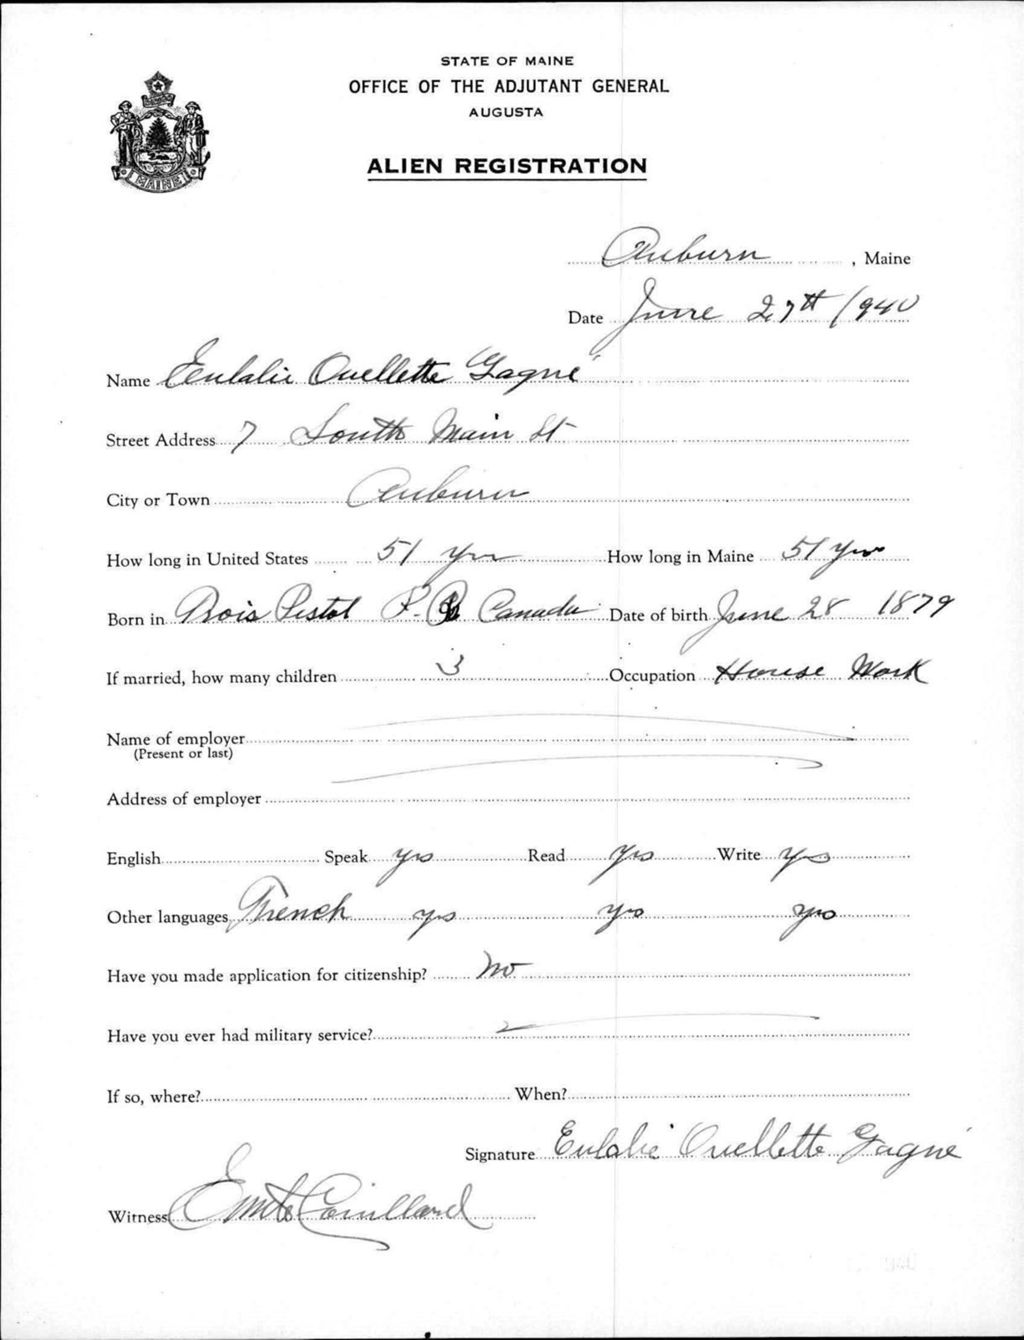 STATE OF MAINE
OFFICE OF THE ADJUTANT GENERAL
AUGUSTA
ALIEN REGISTRATION
MAINE
Auburn, Maine
Date June 27th 1940
Name Eulalie Ouellette Gagné
Street Address 7 South Main St
City or Town Auburn
How long in United States 51 yrs How long in Maine 51 yrs
Born in Trois Pistol P. Q Canada Date of birth June 28 1879
If married, how many children 3 Occupation House Work
Name of employer
(Present or last)
Address of employer
English Speak yes Read yes Write yes
Other languages French yes yes yes
Have you made application for citizenship? No
Have you ever had military service?
If so, where? When?
Signature Eulalie Ouellette Gagné
Witness